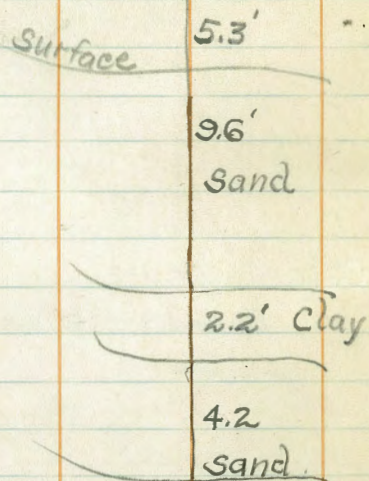 5.3'
Surface
9.6'
Sand
2.2' Clay
4.2
Sand.